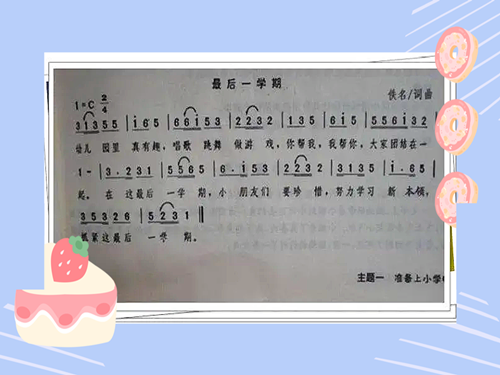 最后一学期
1=C 2/4
佚名/词曲
31355 |i65 |66i53 |2232 |135 |6i5 |556i32 |
幼儿 园里 真有趣，唱歌 跳舞 做游 戏，你帮我，我帮你，大家团结在一
1- |3.231 |5155 |6.i53 |2232 |3123 |i.65 |
起。在 这最后 一学 期，小 朋友们 要珍 惜，努力学习 新 本领，
355326 |5231 ‖
抓紧这最后 一学 期。
主题一 准备上小学